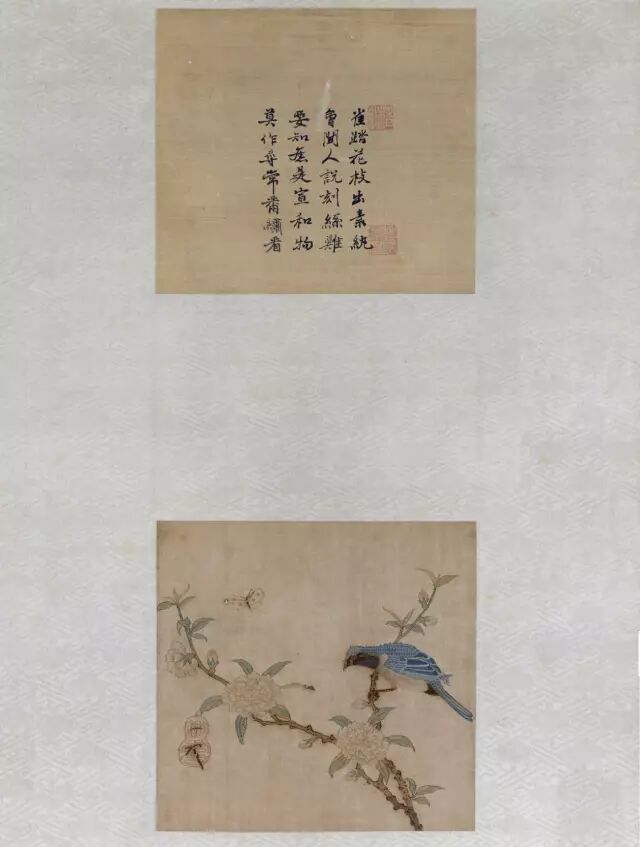 雀踏花枝出素紈
曾聞人說刻絲難
要知應是宣和物
莫作尋常黹繡看